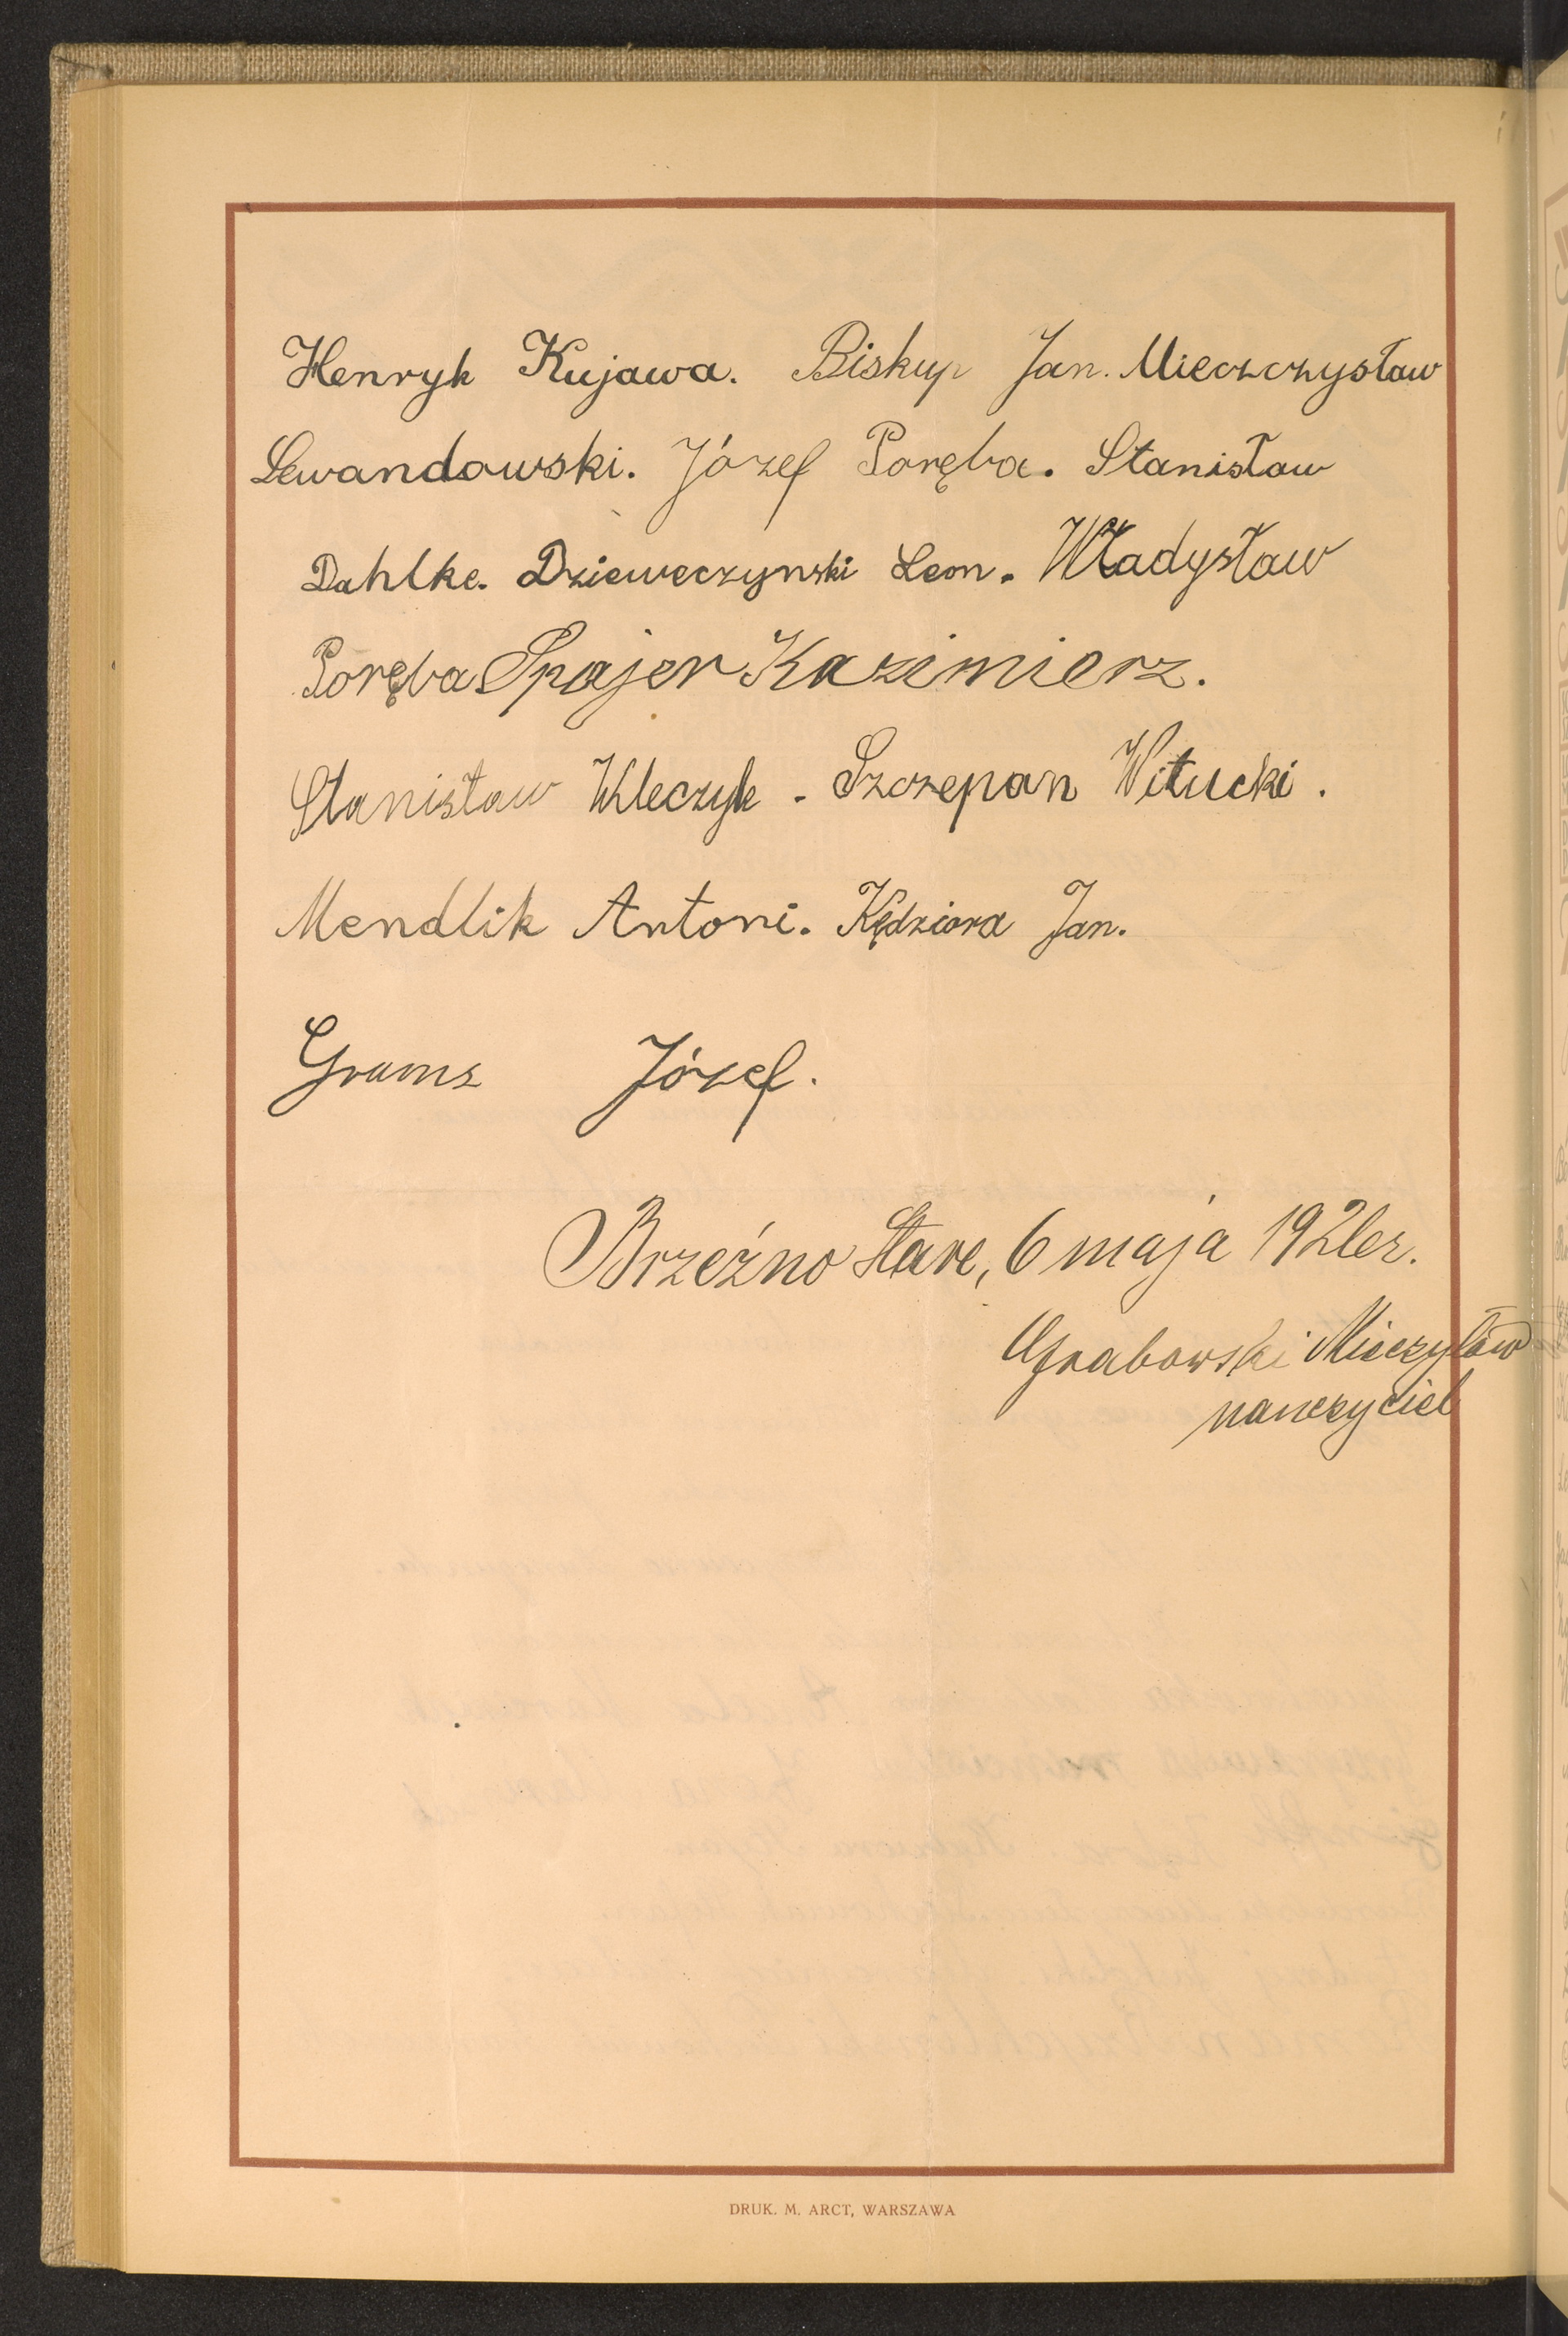 Henryk Kujawa. Biskup Jan. Mieczczysław
Lewandowski. Józef Poręba. Stanisław
Dahlke. Dzieweczynski Leon. Władysław
Poręba Spajer Kazimierz.
Stanisław Kleczyk. Szczepan Witucki.
Mendlik Antoni. Kędziora Jan.
Grams Józef.
Brzeźno Stare, 6 maja 1926r.
Grabowski Mieczysław
nauczyciel
DRUK. M. ARCT, WARSZAWA